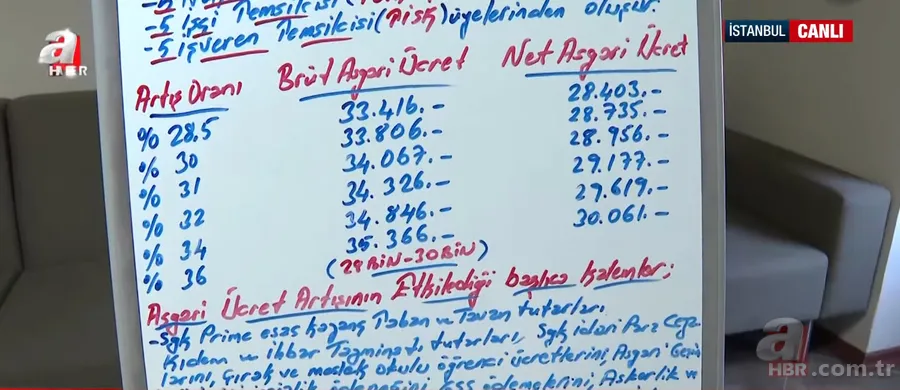 a
HBR
İSTANBUL CANLI
-5 İşçi Temsilcisi
-5 işveren Temsilcisi (TİSK) üyelerinden oluşur.
Artış Oranı Brüt Asgari Ücret Net Asgari Ücret
% 28.5 33.416.- 28.403.-
% 30 33.806.- 28.735.-
% 31 34.067.- 28.956.-
% 32 34.326.- 29.177.-
% 34 34.846.- 29.619.-
% 36 35.366.- 30.061.-
(28 BİN-30 BİN)
Asgari Ücret Artışının Etkilediği başlıca kalemler;
-Sgk Prime esas kazanç Taban ve Tavan tutarları
Kıdem ve ihbar Tazminatı tutarları, Sgk idari Para Ceza
larını, çırak ve meslek okulu öğrenci ücretlerini, Asgari Geçim
ödemelerini, Askerlik ve
a
HBR.com.tr